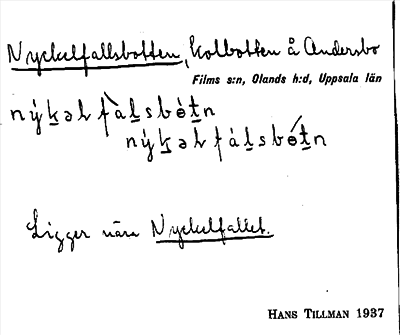 Nyckelfallsbotten, kolbotten å Andersbo
Films s:n, Olands h:d, Uppsala län
nýk̲əl fàḻsbòṯn
nýk̲əl fàḻsbө́ṯn
Ligger nära Nyckelfallet.
HANS TILLMAN 1937